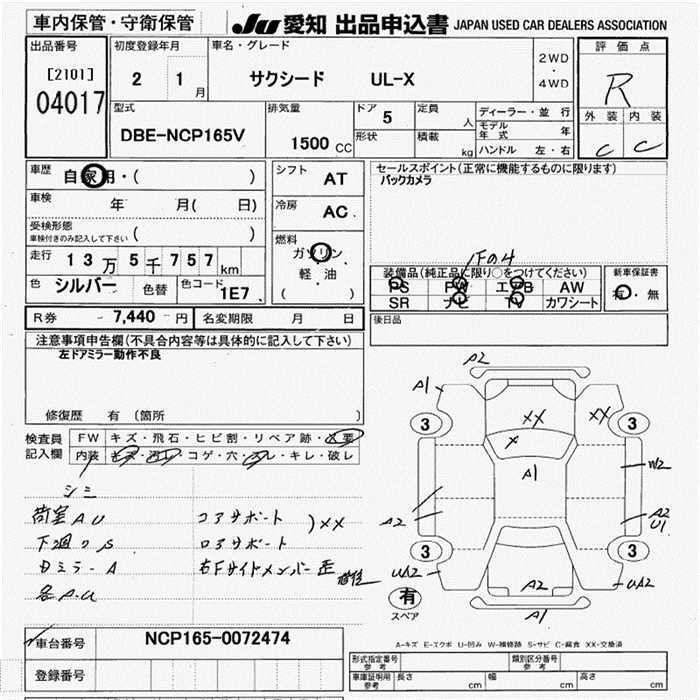 車内保管・守衛保管
Ju 愛知 出品申込書 JAPAN USED CAR DEALERS ASSOCIATION
出品番号
[2101]
04017
初度登録年月
2 1月
車名・グレード
サクシード UL-X
2WD
・
4WD
評価点
R
外装 内装
C C
型式
DBE-NCP165V
排気量
1500 CC
ドア 5
形状
定員 人
積載 kg
ディーラー・並行
モデル年式 年
ハンドル 左・右
車歴 自家用・( )
車検 年 月( 日)
受検形態
車検付きのみ記入して下さい ( )
走行 13万5千757km
色 シルバー 色替 色コード 1E7
シフト AT
冷房 AC
燃料
ガソリン
軽・油
( )
セールスポイント(正常に機能するものに限ります)
バックカメラ
1Fの4
装備品(純正品に限り○をつけてください)
PS PW エアB AW
SR ナビ TV カワシート
新車保証書
有・無
R券 - 7,440 - 円 名変期限 月 日
後日品
注意事項申告欄(不具合内容等は具体的に記入して下さい)
左ドアミラー動作不良
修復歴 有(箇所 )
検査員
記入欄
FW キズ・飛石・ヒビ割・リペア跡・X要
内装 キズ・汚れ・コゲ・穴・スレ・キレ・破レ
シミ
荷室AU コアサポート )XX
下廻りS ロアサポート
ミラーA 右Fサイドメンバー歪 修復
各A.U
A2
A1
XX
XX
X
A1
3
3
3
3
W2
A2
A2
U1
UA2
UA2
A2
A1
有
スペア
A-キズ E-エクボ U-凹み W-補修跡 S-サビ C-腐食 XX-交換済
車台番号 NCP165-0072474
登録番号
形式指定番号
参考
類別区分番号
参考
車庫証明用
参考
長さ cm 幅 cm 高さ cm